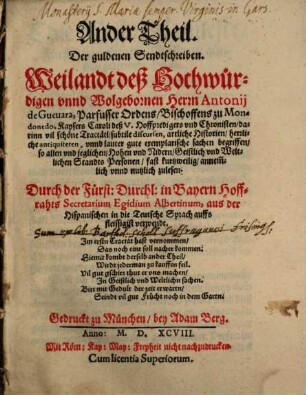 Monasterij S. Mariae semper Virginis in Gars.
Ander Theil.
Der guldenen Sendtschreiben.
Weilandt deß Hochwür-
digen vnnd Wolgebornen Herrn Antonij
de Gueuara, Parfusser Ordens / Bischoffens zu Mon-
donedo, Kaysers Caroli deß V. Hoffpredigers vnd Chronisten / dar
rinn vil schöne Tractätl / subtile discursen, artliche Historien / herrli-
che antiquiteten, vnnd lauter gute exemplarische sachen begriffen /
so allen vnd jeglichen / Hohen vnd Nidern / Geistlich vnd Welt-
lichen Standts Personen / fast kurtzweilig / annemb-
lich vnnd nutzlich zulesen.
Durch der Fürst: Durchl: in Bayern Hoff-
rahts Secretarium Egidium Albertinum, auß der
Hispanischen in die Teutsche Sprach auffs
fleissigist verwendt.
Sum
Im ersten Tractät hast vernommen /
Das noch eine soll nacher kommen:
Hiemit kombt derselb ander Theil /
Wirdt jederman zu kauffen feil.
Vil gut gschirr thut er vns machen /
In Geistlich vnd Weltlichn sachen.
Bitt mit Gedult der zeit erwartn /
Seindt vil gut Frücht noch in dem Gartn.
Gedruckt zu München / bey Adam Berg.
Anno: M. D. XCVIII.
Mit Röm: Kay: May: Freyheit nicht nachzudrucken.
Cum licentia Superiorum.